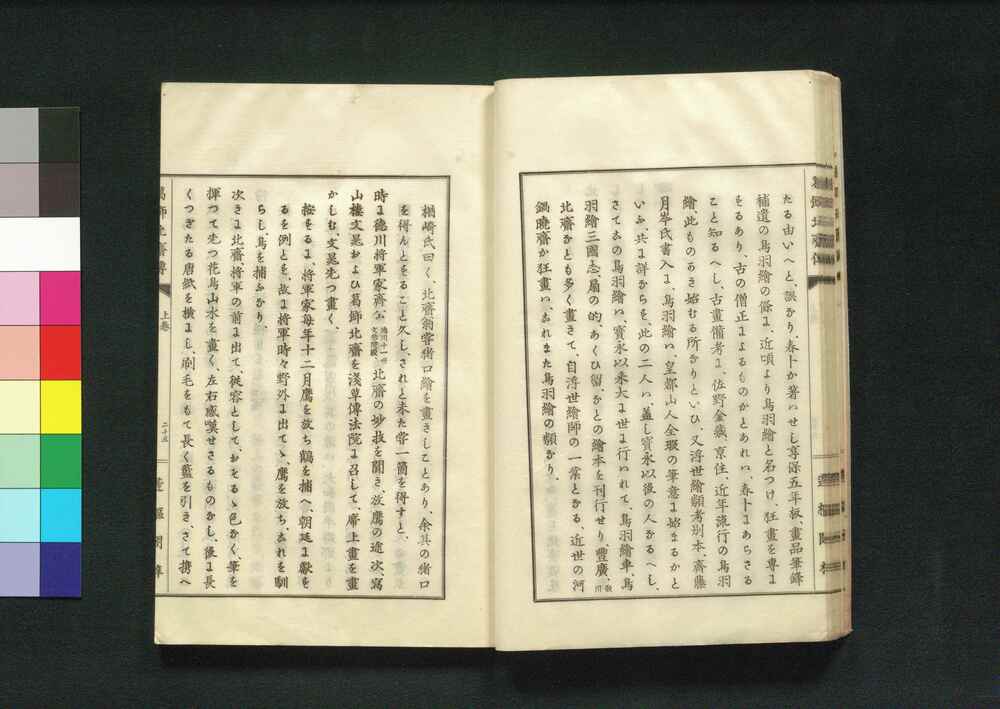 たる由いへと、誤なり春卜か著ハせし享保五年板、畫品筆録
補遺の鳥羽繪の條よ、近頃より鳥羽繪と名つけ、狂畫を專よ
するあり、古の僧正よよるものかとあれハ、春卜よあらさる
こと知るへし、古畫備考よ、佐野金藏、京住、近年流行の鳥羽
繪此ものあき始むる所なりといひ、又浮世繪類考別本、齋藤
月岑氏書入よ、鳥羽繪ハ、皇都山人全暇の筆意よ始まるかと
いふ、共よ詳からを、此の二人ハ、蓋し寳永以後の人なるへし、
さて古の鳥羽繪ハ、寳永以来大よ世よ行ハれて、鳥羽繪車、鳥
羽繪三國志、扇の的、あくひ留なとの繪本を刊行せり、豐廣、歌川
北齋なとも多く畫きて、自浮世繪師の一業となる、近世の河
鍋曉齋か狂畫ハ、古れまた鳥羽繪の類なり、
楢崎氏曰く、北齋翁嘗猪口繪を畫きしことあり、余其の猪口
を得んとをること久し、されと未た嘗一箇を得すと、
時よ德川將軍家齊公、德川十一世文恭院殿、北齋の妙技を聞き、放鷹の途次、寫
山樓文晁および葛飾北齋を淺草傳法院よ召して、席上畫を畫
かしむ、文晁先つ畫く、
按をるよ、將軍家每年十二月鷹を放ち鶴を捕へ、朝廷よ獻を
るを例とを、故よ將軍時々野外よ出てゝ、鷹を放ち、古れを馴
らし、鳥を捕ふなり、
次きよ北齋將軍の前よ出て、從容として、おそるゝ色なく、筆を
揮つて先つ花鳥山水を畫く、左右感嘆せさるものなし、後よ長
くつきたる唐紙を橫よし、刷毛をもて長く藍を引き、さて携へ
葛飾北齋傳
上卷
二十五